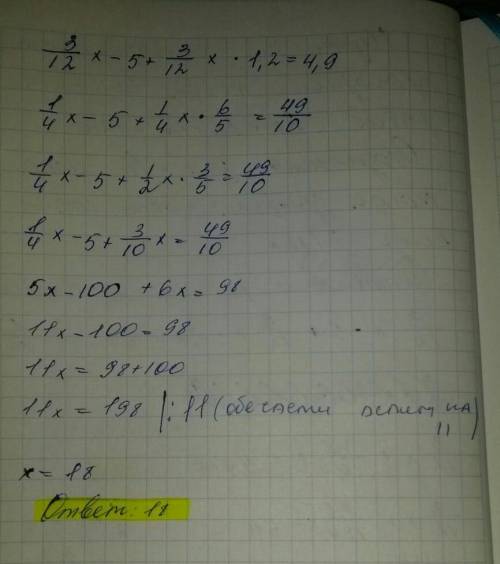 3/12 x - 5 + 3/12 x · 1,2 = 4,9
1/4 x - 5 + 1/4 x · 6/5 = 49/10
1/4 x - 5 + 1/2 x · 3/5 = 49/10
1/4 x - 5 + 3/10 x = 49/10
5x - 100 + 6x = 98
11x - 100 = 98
11x = 98 + 100
11x = 198 | : 11 (обе части на 11)
x = 18
Ответ: 18